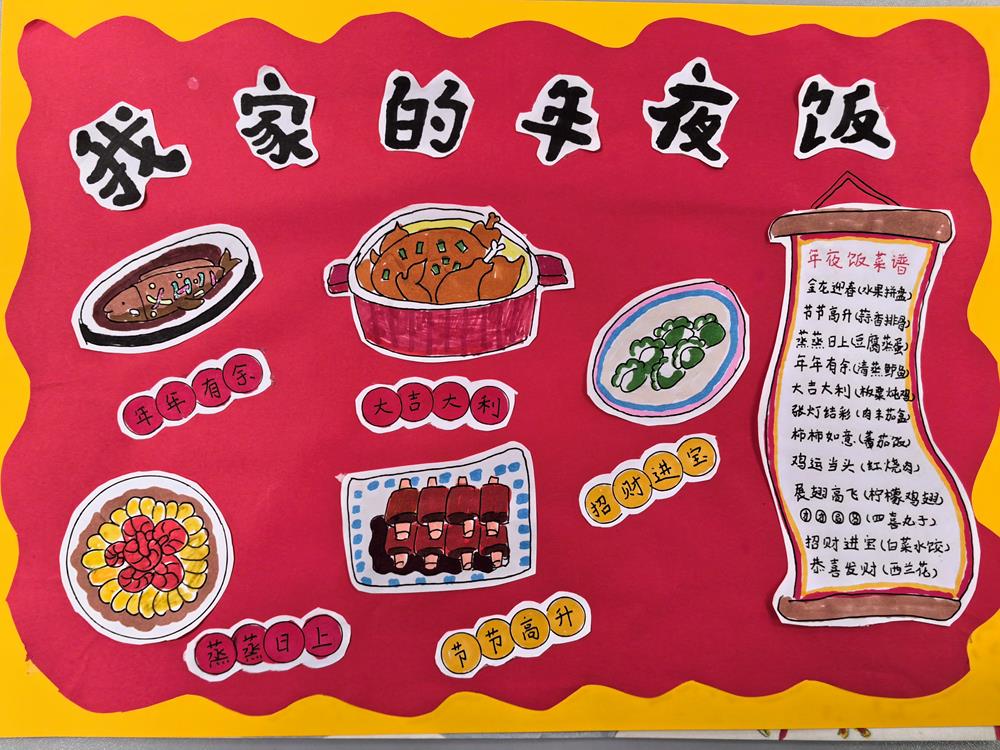 我家的年夜饭
年年有余
大吉大利
招财进宝
蒸蒸日上
节节高升
年夜饭菜谱
金龙迎春(水果拼盘)
节节高升(蒜香排骨)
蒸蒸日上(豆腐蒸蛋)
年年有余(清蒸鲈鱼)
大吉大利(板栗炖鸡)
张灯结彩(肉末茄盒)
柿柿如意(蕃茄饭)
鸿运当头(红烧肉)
展翅高飞(柠檬鸡翅)
(四喜丸子)
招财进宝(白菜水饺)
恭喜发财(西兰花)